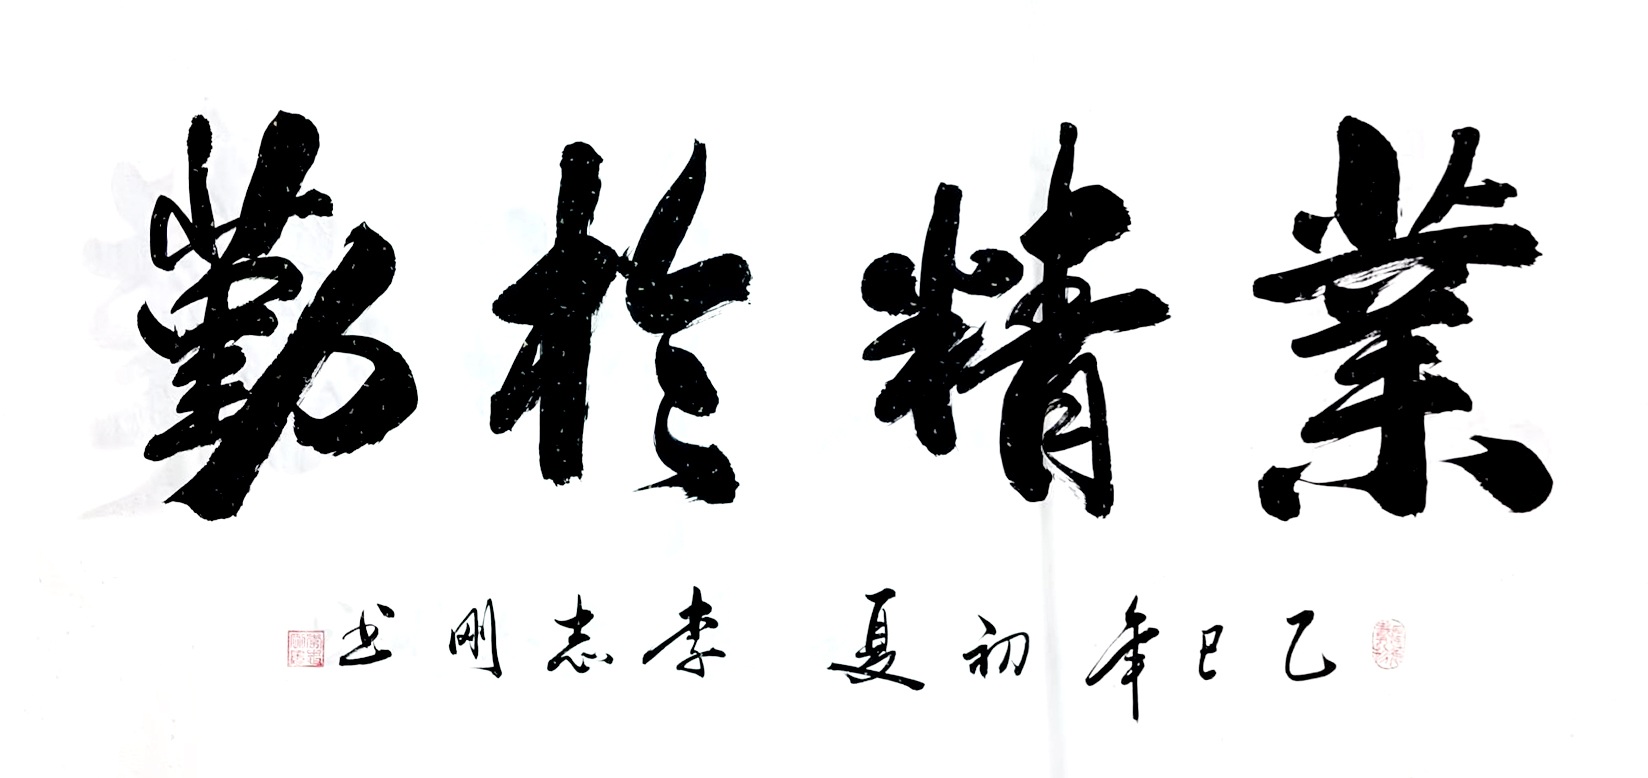 業精於勤
乙巳年初夏 李志刚书